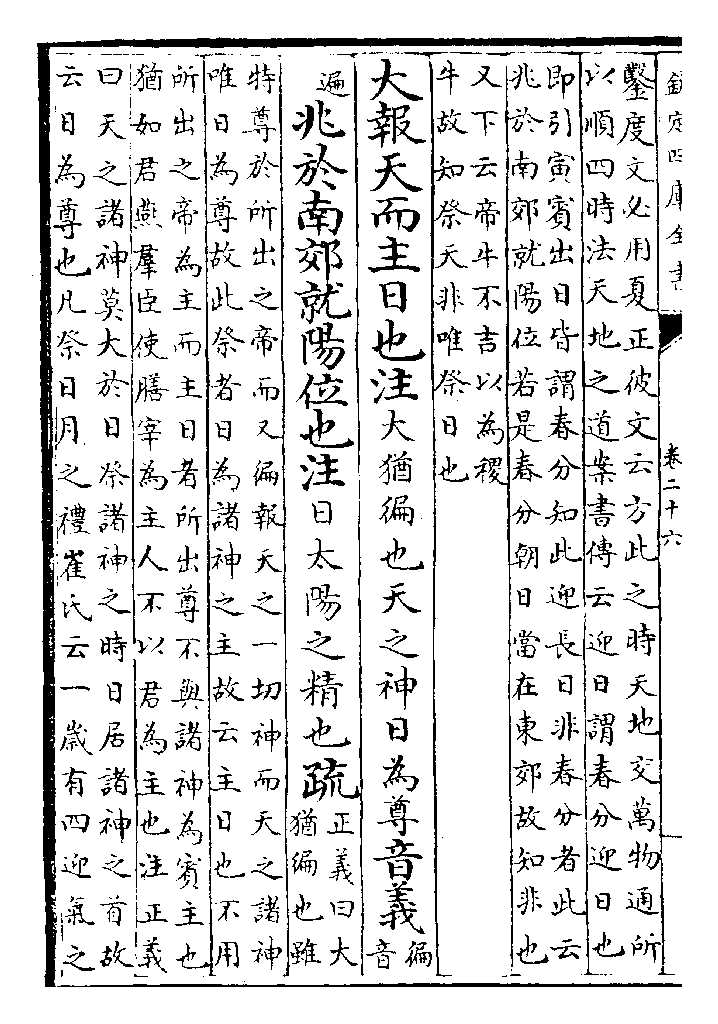 欽定四庫全書 卷二十六
鑿度文必用夏正彼文云方此之時天地交萬物通所
以順四時法天地之道案書傳云迎日謂春分迎日也
即引寅賓出日皆謂春分知此迎長日非春分者此云
兆於南郊就陽位若是春分朝日當在東郊故知非也
又下云帝牛不吉以為稷
牛故知祭天非唯祭日也
大報天而主日也注大猶徧也天之神日為尊音義徧音
遍兆於南郊就陽位也注日太陽之精也疏正義曰大
猶徧也雖
特尊於所出之帝而又徧報天之一切神而天之諸神
唯日為尊故此祭者日為諸神之主故云主日也不用
所出之帝為主而主日者所出尊不與諸神為賓主也
猶如君燕羣臣使膳宰為主人不以君為主也注正義
曰天之諸神莫大於日祭諸神之時日居諸神之首故
云日為尊也凡祭日月之禮崔氏云一歲有四迎氣之